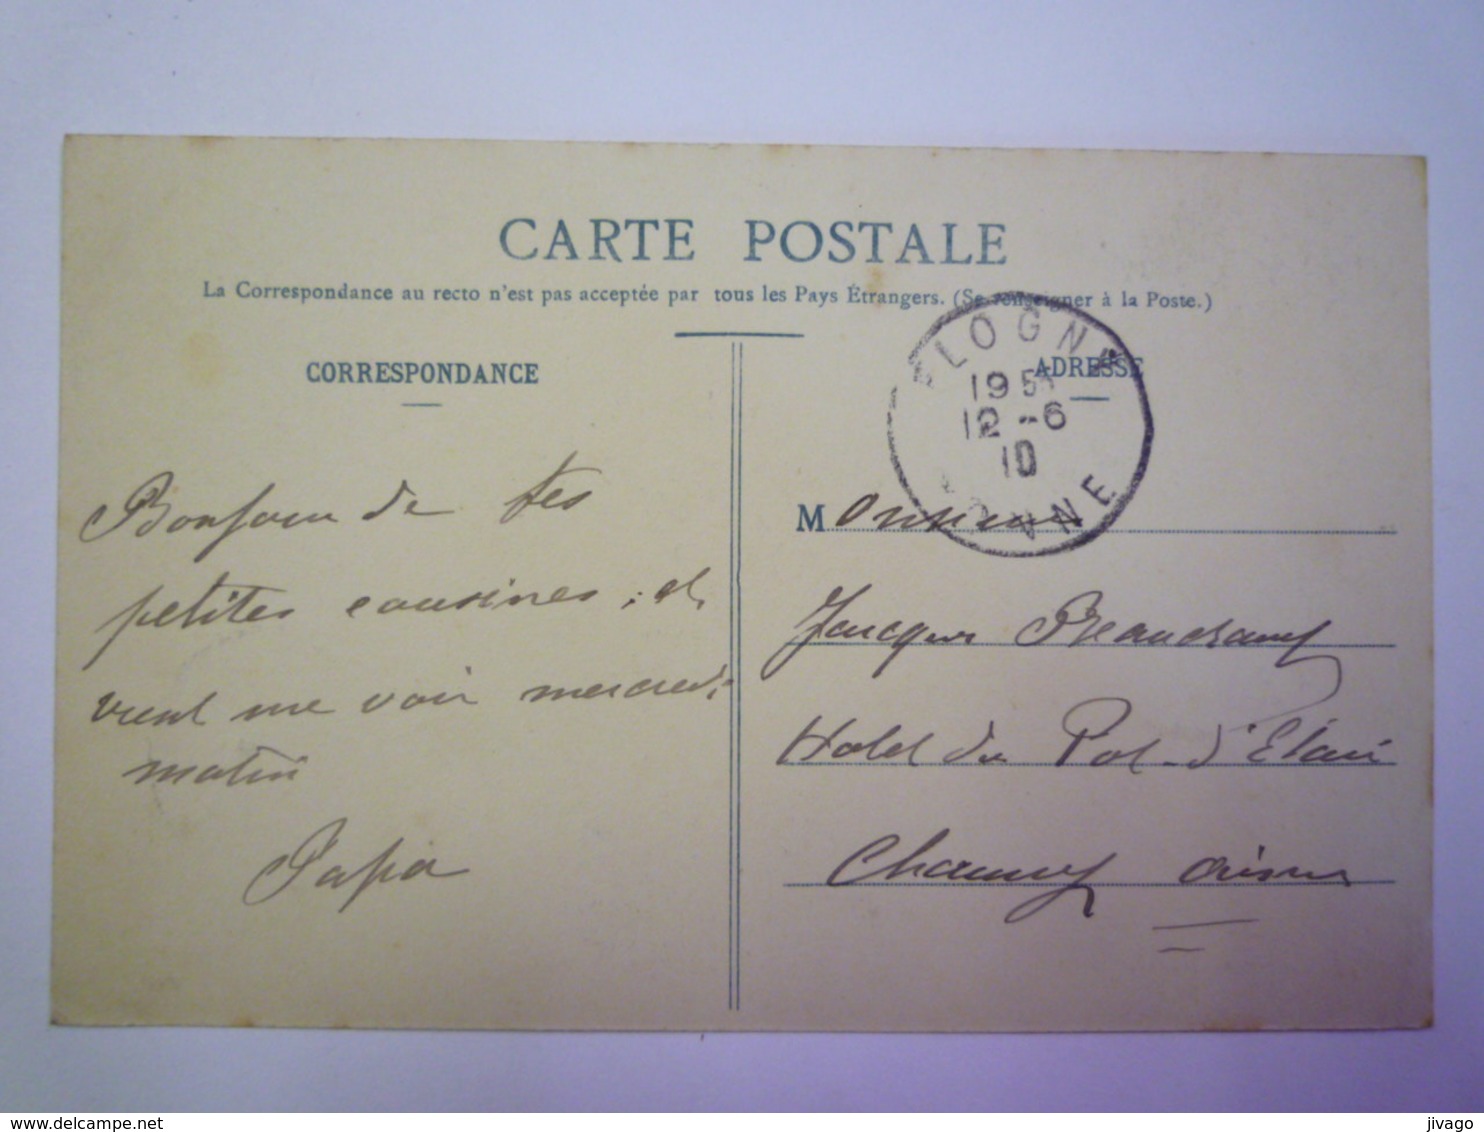 CARTE POSTALE
La Correspondance au recto n'est pas acceptée par tous les Pays Étrangers. (Se renseigner à la Poste.)
CORRESPONDANCE
ADRESSE
FLOGNY
19
12 -6
10
YONNE
Bonjour de tes
petites cousines, et
vient me voir mercredi
matin
Papa
Monsieur
Jacques Beauchamp
Hotel du Pot d'Etain
Chauny Aisne
www.delcampe.net
jivago